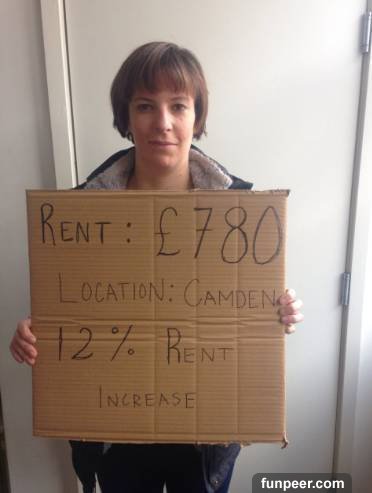 RENT: £780
LOCATION: CAMDEN
12% RENT
INCREASE
funpeer.com